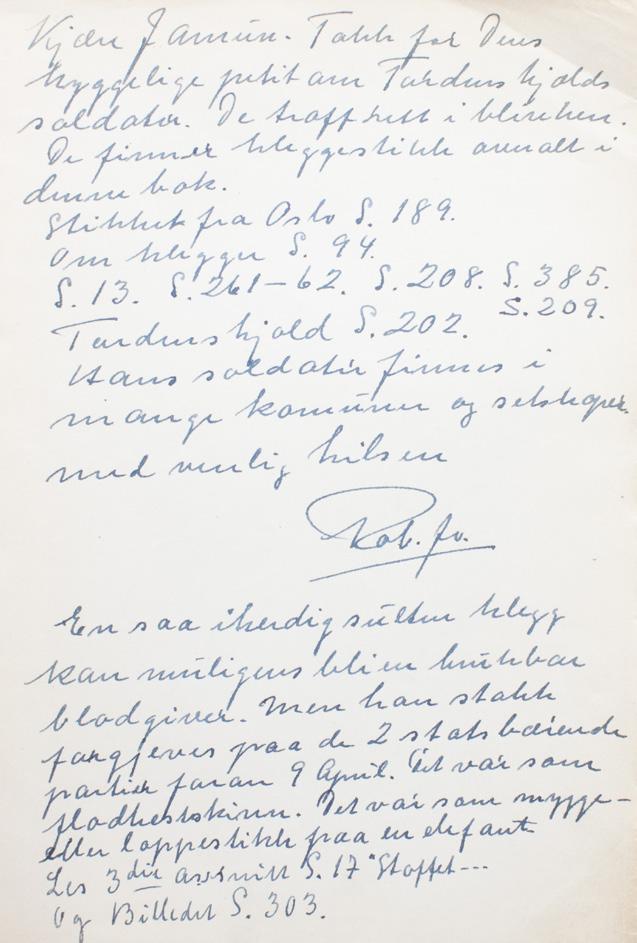 Kjære Jamün. Takk for Deres
hyggelige petit om Tordenskjolds
soldater. De traff rett i blinken.
De finner kleggestikk overalt i
denne bok.
Stikket fra Oslo S. 189.
Om klegger S. 94.
S. 13. S. 261-62. S. 208. S. 385.
S. 209.
Tordenskjold S. 202.
Hans soldater finnes i
mange komüner og selskaper.
med venlig hilsen
Rob.
En saa iherdig sülten klegg
kan müligens bli en brükbar
blodgiver. Men han stakk
forgjeves paa de 2 statsbærende
partier foran 9 April. Det var som
flodhestskinn. Det var som mygge-
eller loppestikk paa en elefant
Les 3die avsnitt S. 17 "Stoffet---
Og Billedet S. 303.